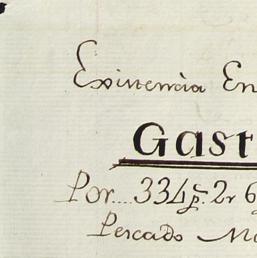 Existencia En
Gast
Por... 334p.s 2r 6
Pescado Ma